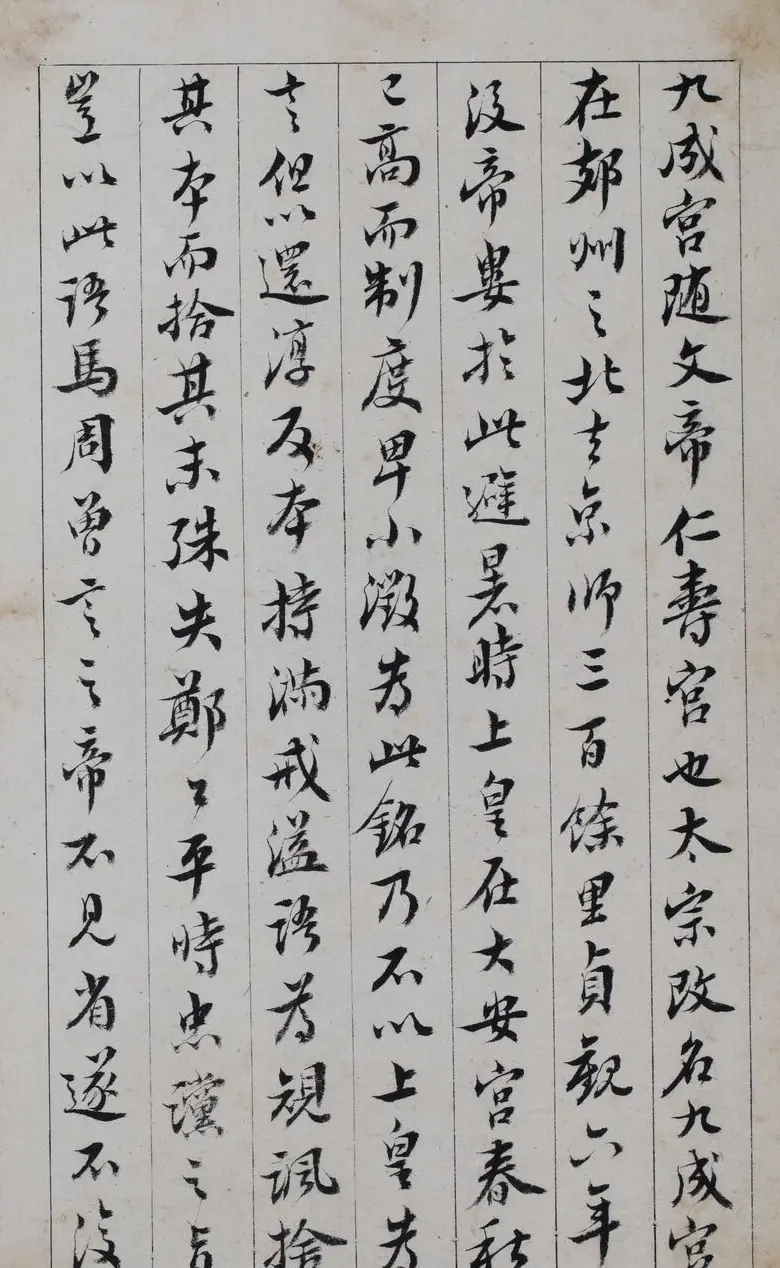 九成宮随文帝仁壽宮也太宗改名九成宮
在郊州之北去京師三百餘里貞觀六年
没帝婁於此避暑時上皇在大安宮春秋
已高而制度卑小澂為此銘乃不以上皇為
言但以還淳反本持滿戒溢語為規諷捨
其本而拾其末殊失鄭公平時忠讜之旨
豈以此語馬周曽言之帝不見省遂不復